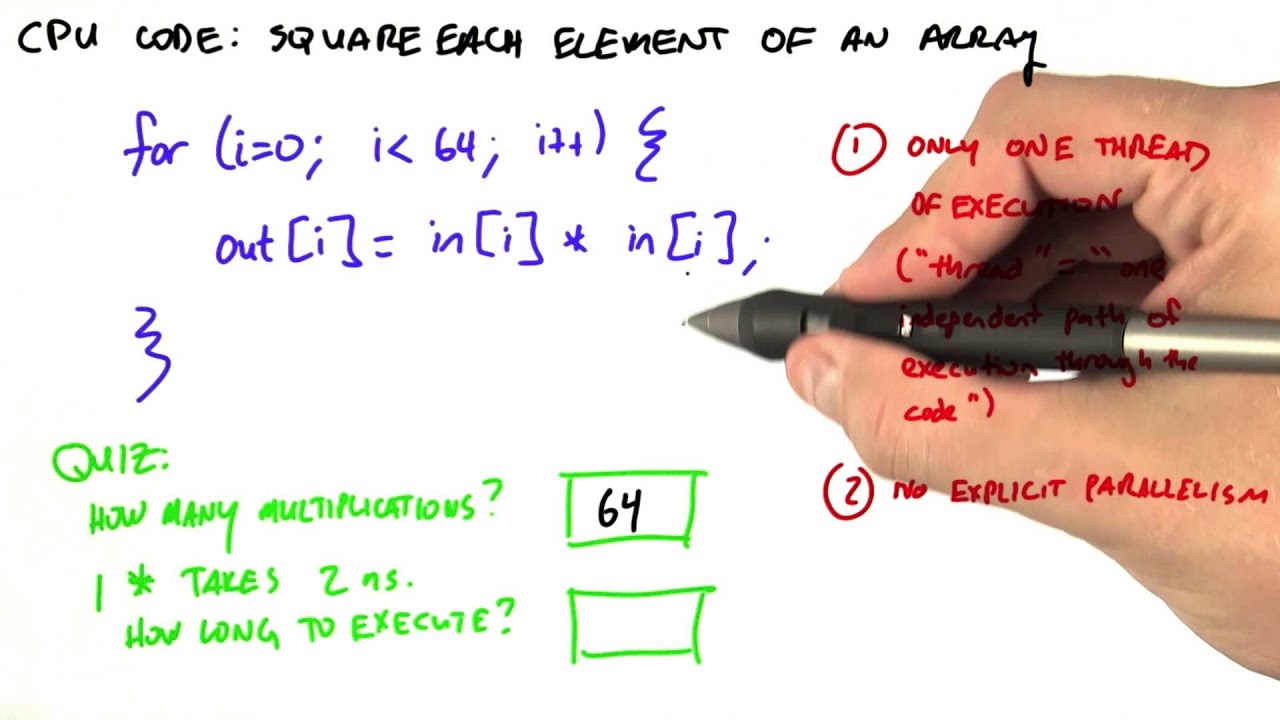 CPU CODE: SQUARE EACH ELEMENT OF AN ARRAY
for (i=0; i< 64; i++) {
out[i] = in[i] * in[i];
}
① ONLY ONE THREAD
OF EXECUTION
("thread" = "one
independent path of
execution through the
code")
② NO EXPLICIT PARALLELISM
QUIZ:
HOW MANY MULTIPLICATIONS?
64
1 * TAKES 2 ns.
HOW LONG TO EXECUTE?